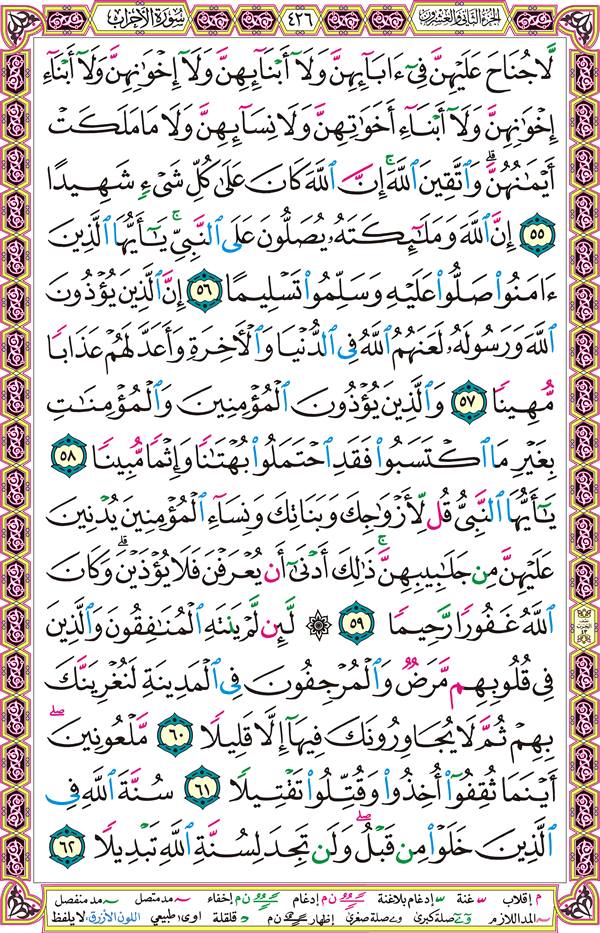 الجزء الثاني والعشرون
٤٢٦
سورة الأحزاب
لَّا جُنَاحَ عَلَيْهِنَّ فِىٓ ءَابَآئِهِنَّ وَلَآ أَبْنَآئِهِنَّ وَلَآ إِخْوَٰنِهِنَّ وَلَآ أَبْنَآءِ
إِخْوَٰنِهِنَّ وَلَآ أَبْنَآءِ أَخَوَٰتِهِنَّ وَلَا نِسَآئِهِنَّ وَلَا مَا مَلَكَتْ
أَيْمَٰنُهُنَّ ۗ وَٱتَّقِينَ ٱللَّهَ ۚ إِنَّ ٱللَّهَ كَانَ عَلَىٰ كُلِّ شَىْءٍ شَهِيدًا
٥٥ إِنَّ ٱللَّهَ وَمَلَٰٓئِكَتَهُۥ يُصَلُّونَ عَلَى ٱلنَّبِىِّ ۚ يَٰٓأَيُّهَا ٱلَّذِينَ
ءَامَنُوا۟ صَلُّوا۟ عَلَيْهِ وَسَلِّمُوا۟ تَسْلِيمًا ٥٦ إِنَّ ٱلَّذِينَ يُؤْذُونَ
ٱللَّهَ وَرَسُولَهُۥ لَعَنَهُمُ ٱللَّهُ فِى ٱلدُّنْيَا وَٱلْءَاخِرَةِ وَأَعَدَّ لَهُمْ عَذَابًا
مُّهِينًا ٥٧ وَٱلَّذِينَ يُؤْذُونَ ٱلْمُؤْمِنِينَ وَٱلْمُؤْمِنَٰتِ
بِغَيْرِ مَا ٱكْتَسَبُوا۟ فَقَدِ ٱحْتَمَلُوا۟ بُهْتَٰنًا وَإِثْمًا مُّبِينًا ٥٨
يَٰٓأَيُّهَا ٱلنَّبِىُّ قُل لِّأَزْوَٰجِكَ وَبَنَاتِكَ وَنِسَآءِ ٱلْمُؤْمِنِينَ يُدْنِينَ
عَلَيْهِنَّ مِن جَلَٰبِيبِهِنَّ ۚ ذَٰلِكَ أَدْنَىٰٓ أَن يُعْرَفْنَ فَلَا يُؤْذَيْنَ ۗ وَكَانَ
ٱللَّهُ غَفُورًا رَّحِيمًا ٥٩ ۞ لَّئِن لَّمْ يَنتَهِ ٱلْمُنَٰفِقُونَ وَٱلَّذِينَ
فِى قُلُوبِهِم مَّرَضٌ وَٱلْمُرْجِفُونَ فِى ٱلْمَدِينَةِ لَنُغْرِيَنَّكَ
بِهِمْ ثُمَّ لَا يُجَاوِرُونَكَ فِيهَآ إِلَّا قَلِيلًا ٦٠ مَّلْعُونِينَ ۖ
أَيْنَمَا ثُقِفُوٓا۟ أُخِذُوا۟ وَقُتِّلُوا۟ تَقْتِيلًا ٦١ سُنَّةَ ٱللَّهِ فِى
ٱلَّذِينَ خَلَوْا۟ مِن قَبْلُ ۖ وَلَن تَجِدَ لِسُنَّةِ ٱللَّهِ تَبْدِيلًا ٦٢
م إقلاب غنة إدغام بلاغنة ن م إدغام ن م إخفاء مد متصل مد منفصل
المد اللازم صلة كبرى صلة صغرى إظهار ن م قلقلة اوى طبيعي اللون الأزرق: لا يلفظ